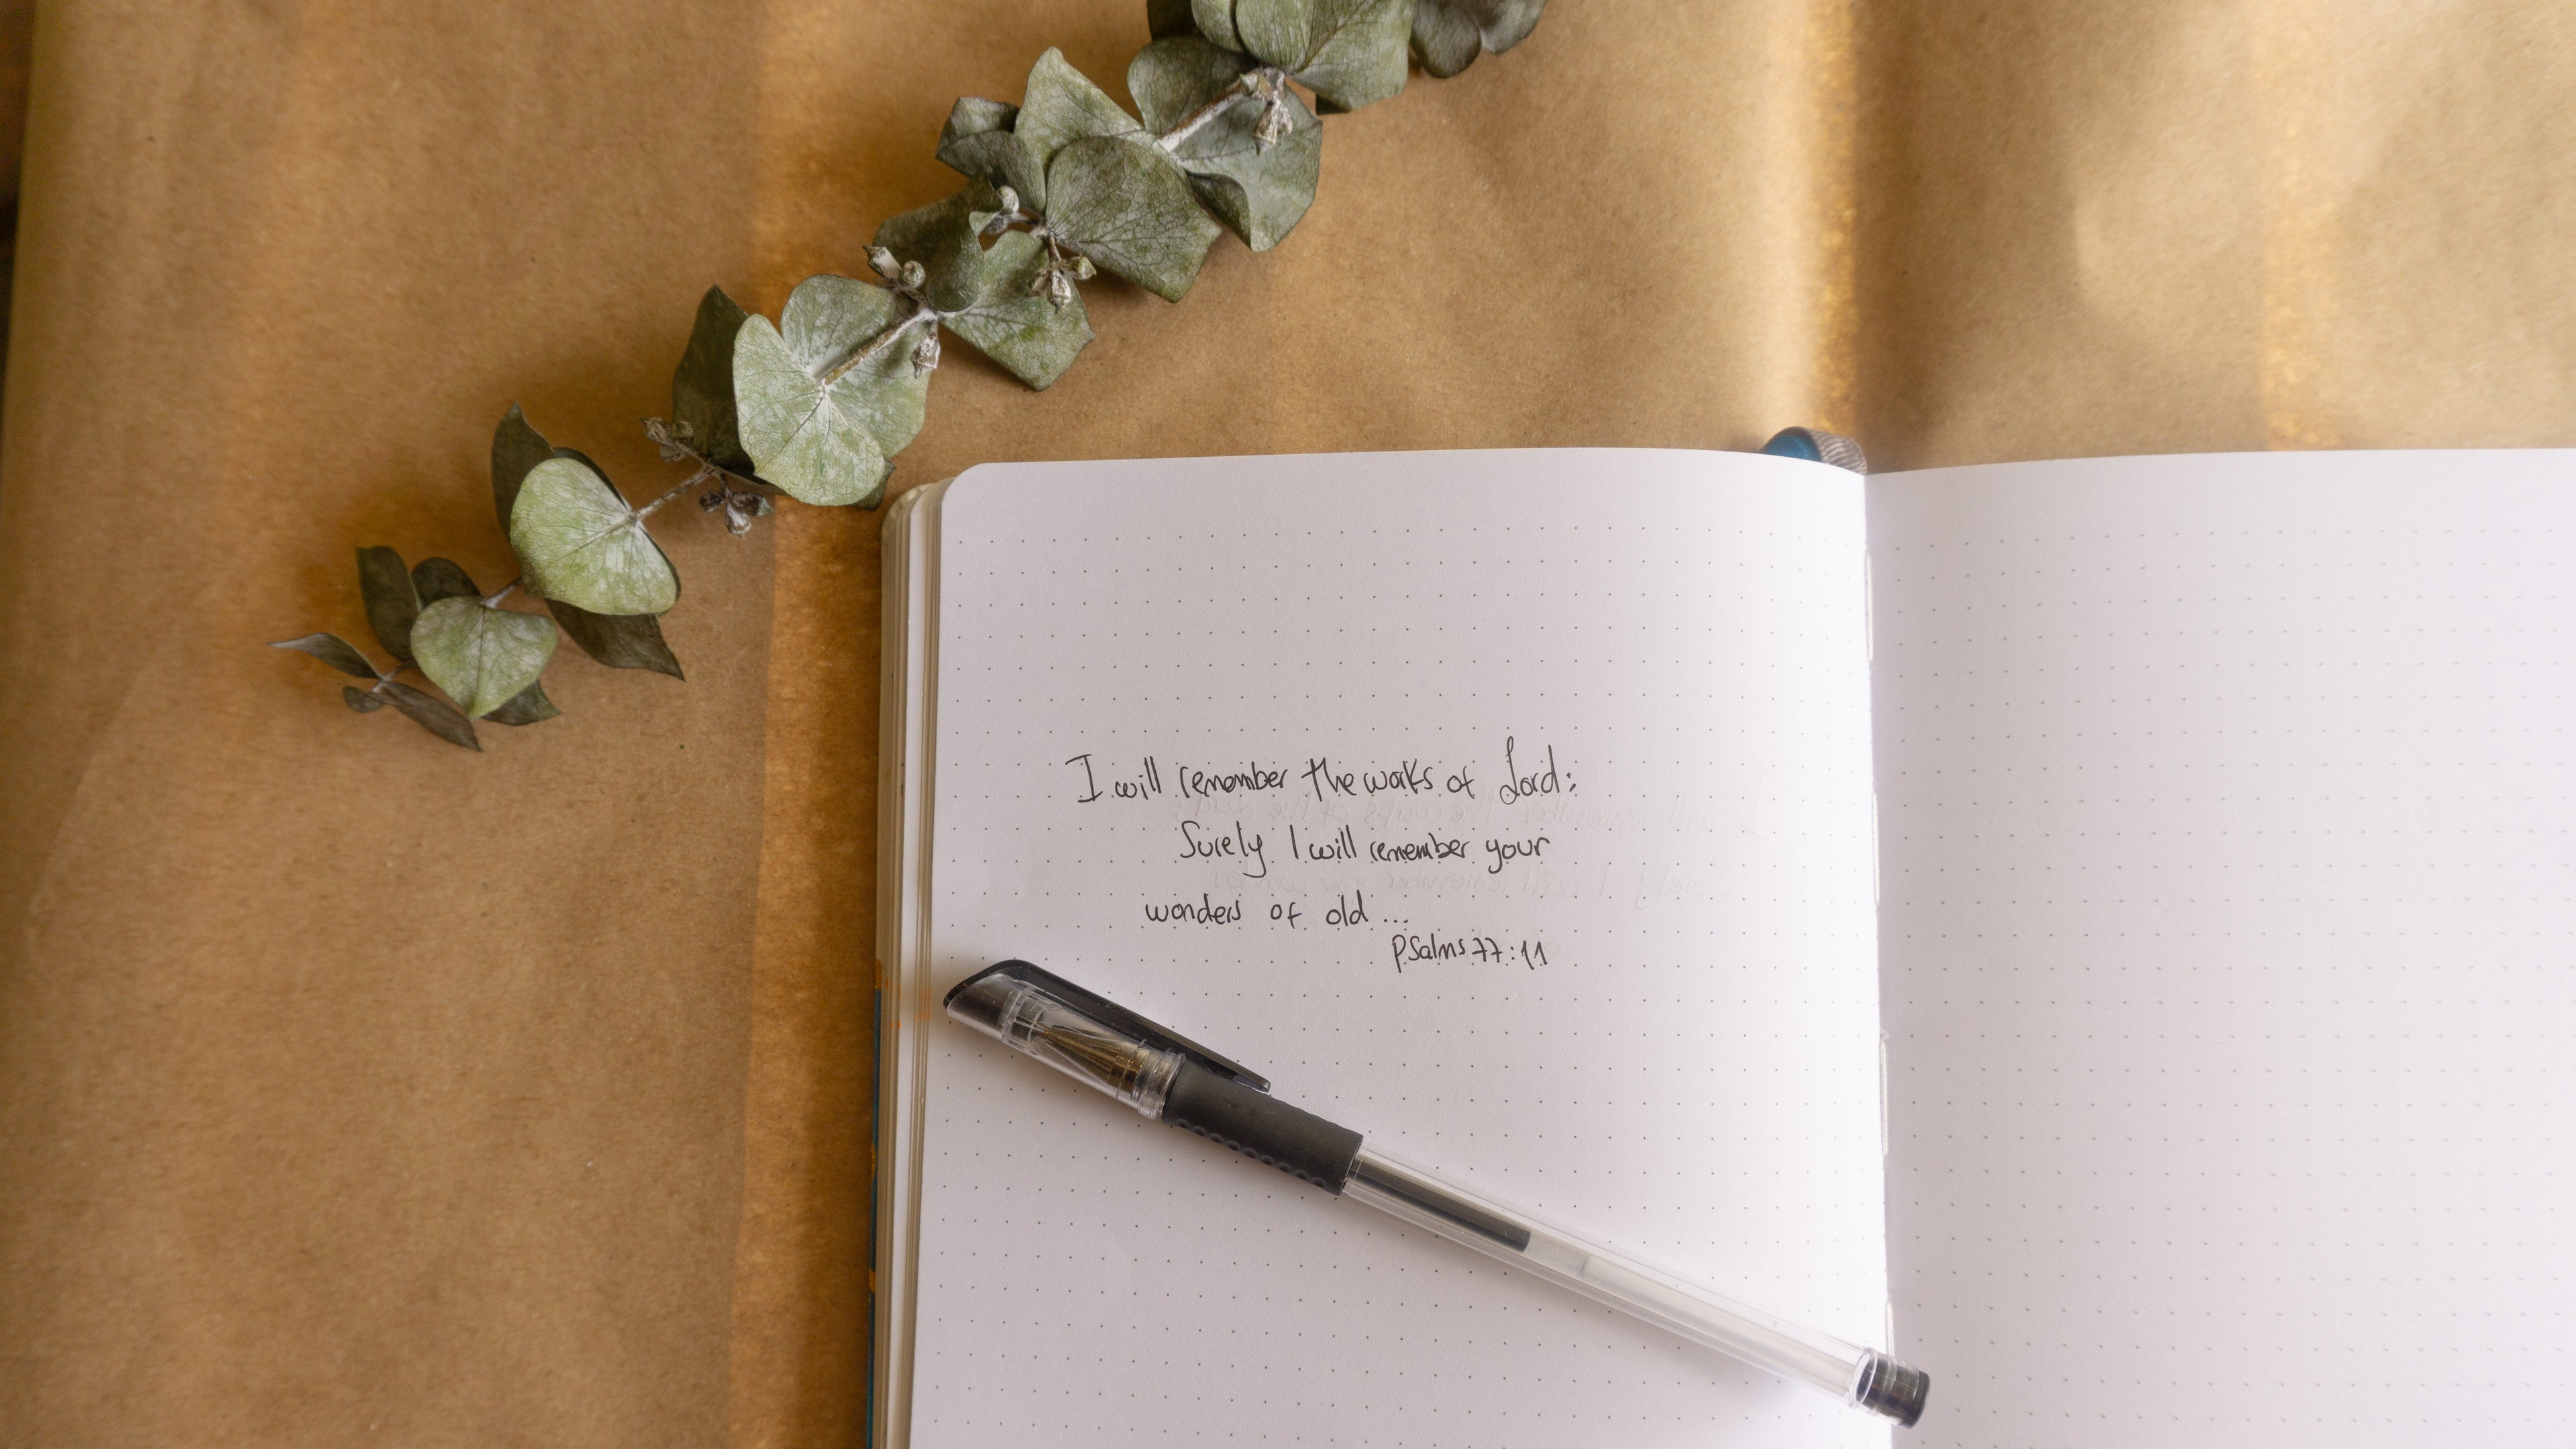 I will remember the works of Lord:
Surely I will remember your
wonders of old...
Psalms 77:11